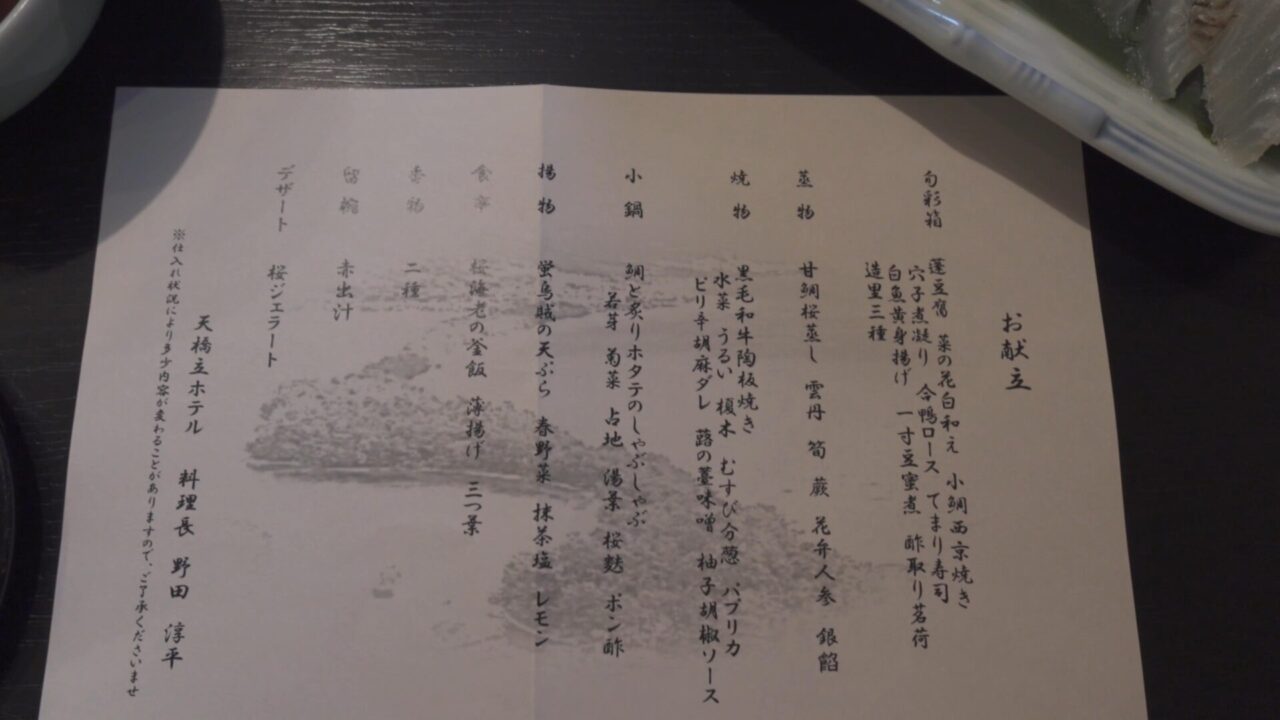 お献立
旬彩箱 蓬豆腐 菜の花白和え 小鯛西京焼き
穴子煮凝り 合鴨ロース てまり寿司
白魚黄身揚げ 一寸豆蜜煮 酢取り茗荷
造里三種
蒸物 甘鯛桜蒸し 雲丹 筍 蕨 花弁人参 銀餡
焼物 黒毛和牛陶板焼き
水菜 うるい 榎木 むすび分葱 パプリカ
ピリ辛胡麻ダレ 蕗の薹味噌 柚子胡椒ソース
小鍋 鯛と炙りホタテのしゃぶしゃぶ
若芽 菊菜 占地 湯葉 桜麩 ポン酢
揚物 蛍烏賊の天ぷら 春野菜 抹茶塩 レモン
食事 桜海老の釜飯 薄揚げ 三つ葉
香物 二種
留椀 赤出汁
デザート 桜ジェラート
天橋立ホテル 料理長 野田 淳平
※仕入れ状況により多少内容が変わることがありますので、ご了承くださいませ